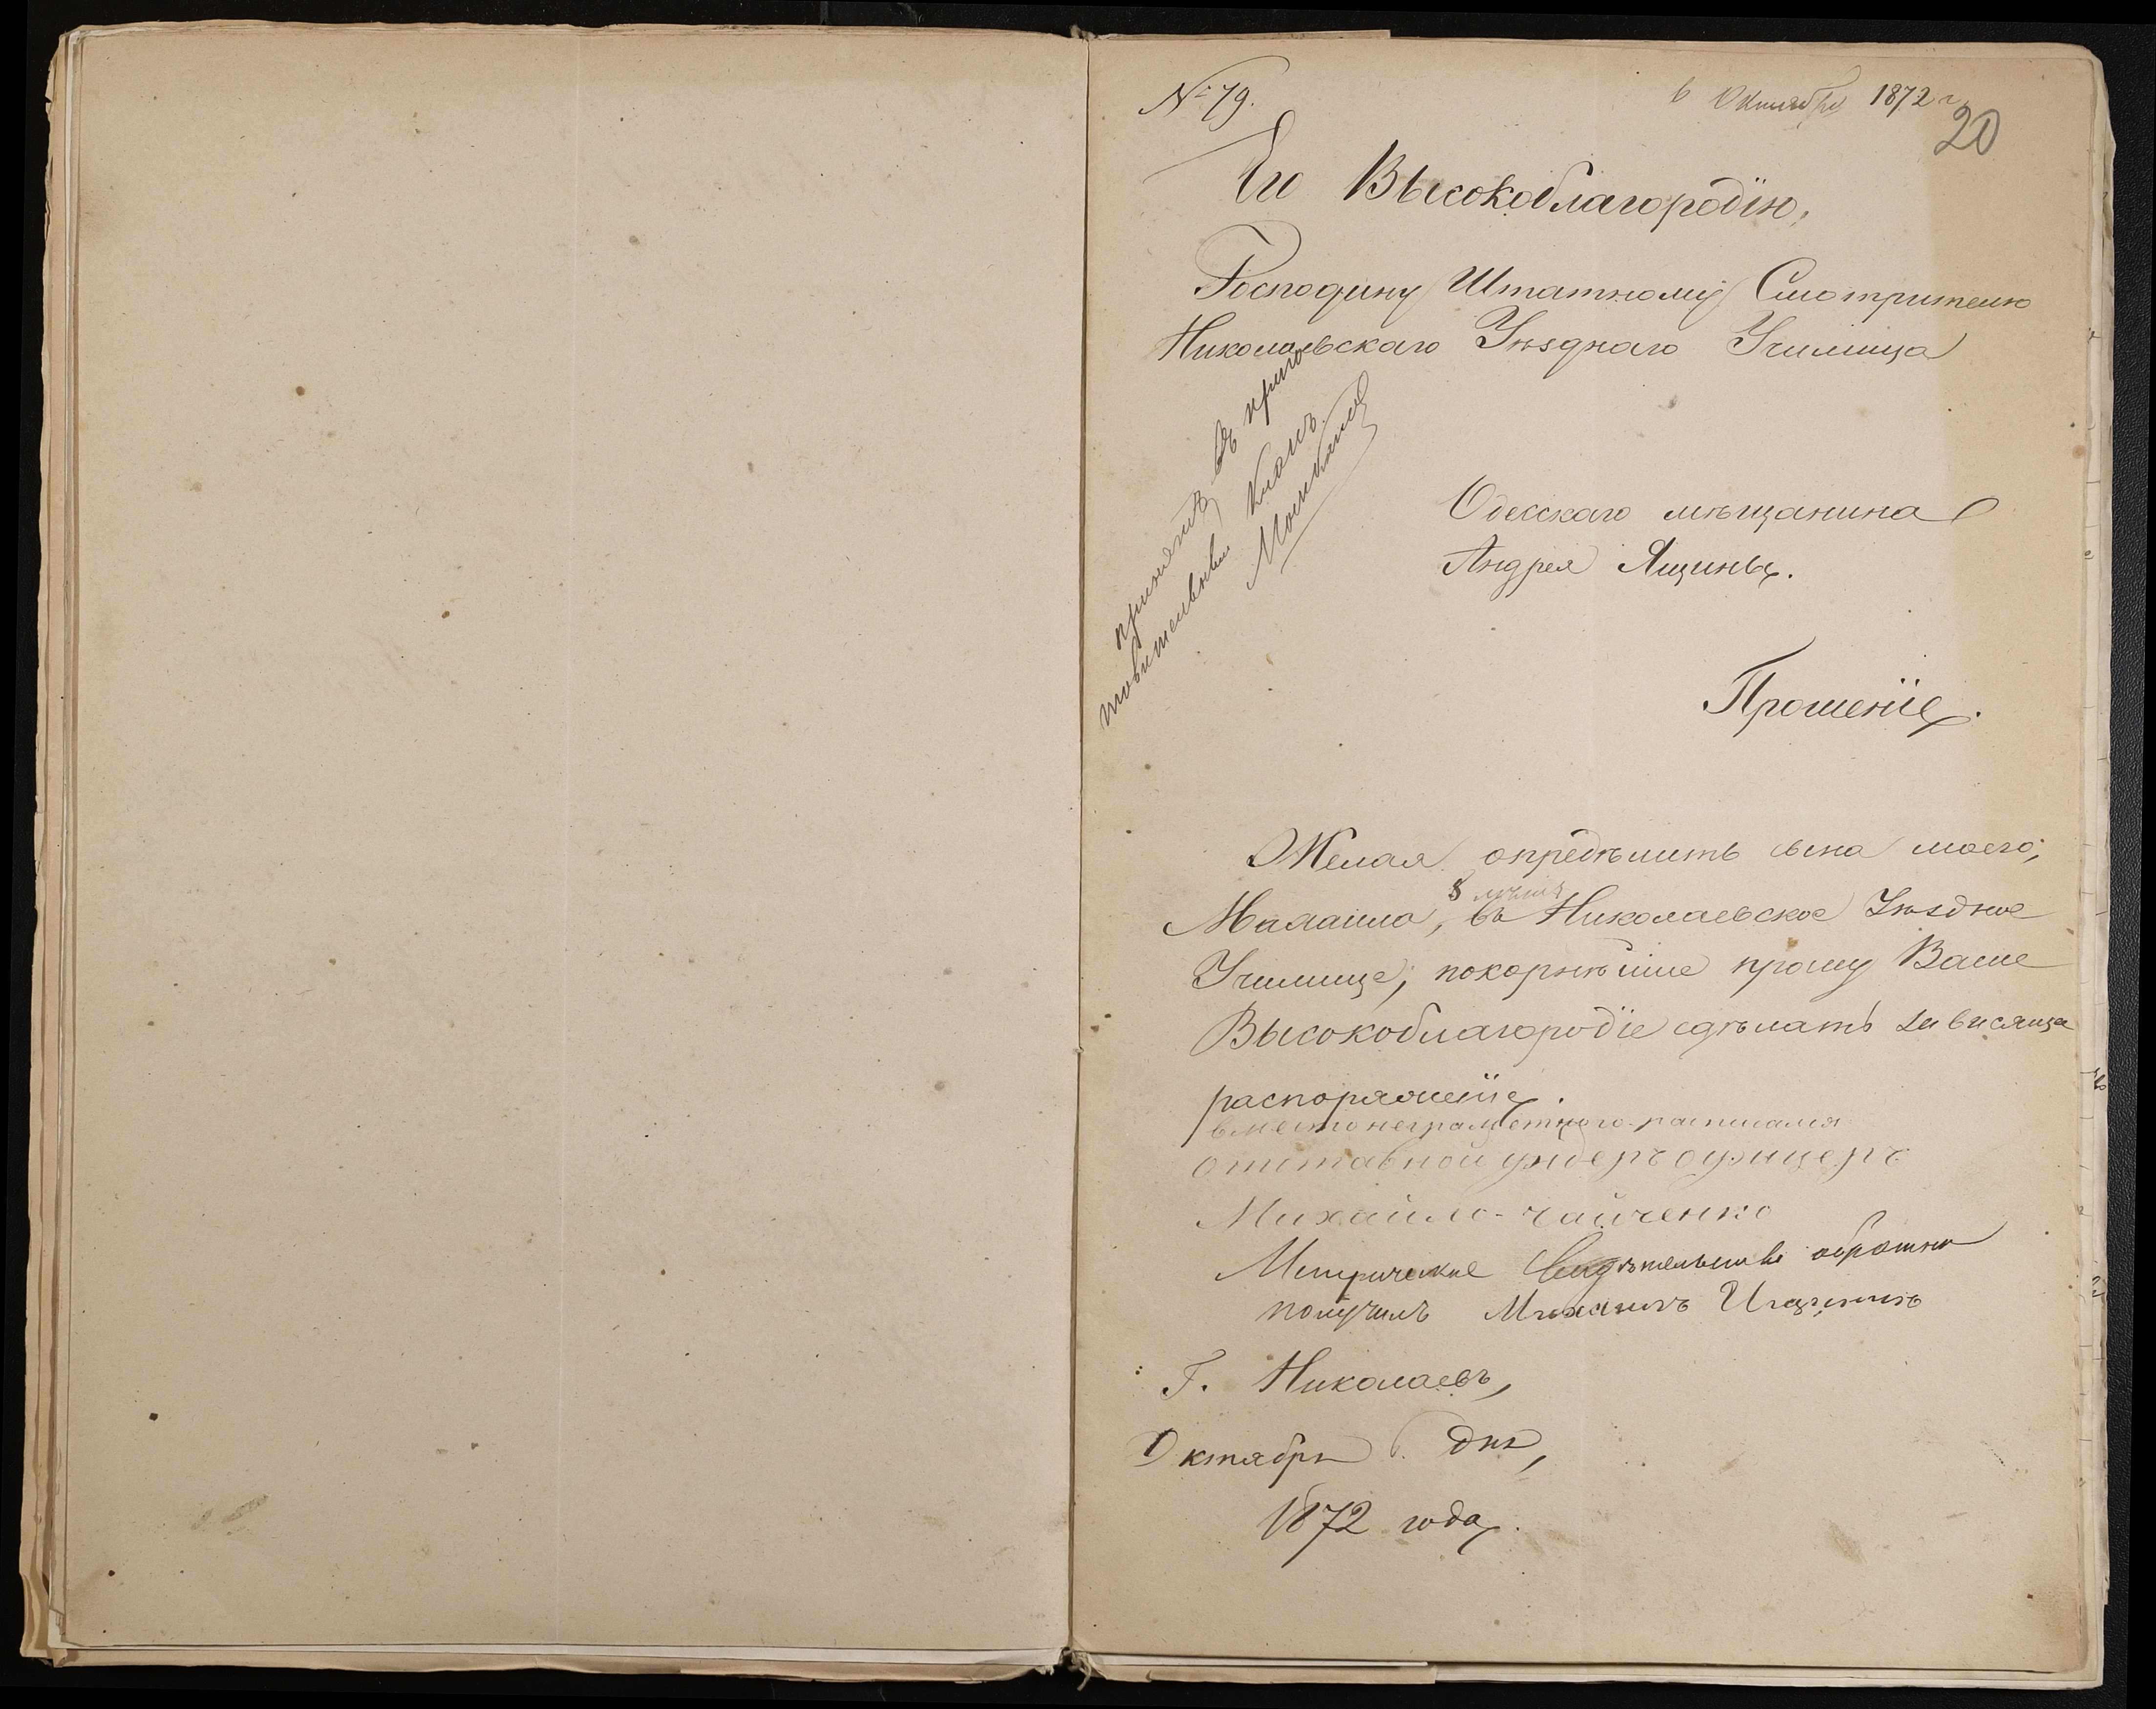 № 79.
6 Октября 1872 г.
20
Его Высокоблагородію,
Господину Штатному Смотрителю
Николаевскаго Уѣзднаго Училища
принятъ въ приго
товительный класъ
Одесскаго мѣщанина
Андрея Ящины.
Прошеніе.
Желая опредѣлить сына моего,
8 лѣтъ
Михаила, въ Николаевское Уѣздное
Училище, покорнѣйше прошу Ваше
Высокоблагородіе сдѣлать зависяще
распоряженіе.
вместо неграметного росписался
отставной ундеръ офицеръ
Михайло Чайченко
Метрическое Свидѣтельство обратно
получилъ Михаилъ
Г. Николаевъ,
Октября 6. дня,
1872 года.